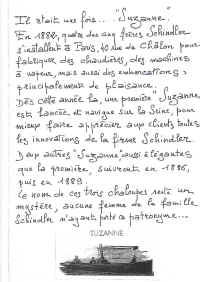 Il était une fois.... "Suzanne".
En 1882, quatre des cinq frères Schindler
s'installent à Paris, 40 Rue de Châlon pour
fabriquer des chaudières, des machines
à vapeur, mais aussi des embarcations,
principalement de plaisance.
Dès cette année là, une première "Suzanne"
est lancée et navigue sur la Seine, pour
mieux faire apprécier aux clients toutes
les innovations de la firme Schindler
Deux autres "Suzanne" aussi élégantes
que la première, suivront en 1886,
puis en 1889.
Le nom de ces trois chaloupes reste un
mystère, aucune femme de la famille
Schindler n'ayant porté ce patronyme...
SUZANNE